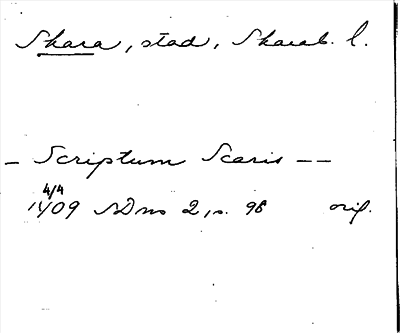 Skara, stad, Skarab. l.
– Scriptum Scaris – –
4/4
1409 SDns 2, s. 98 orig.